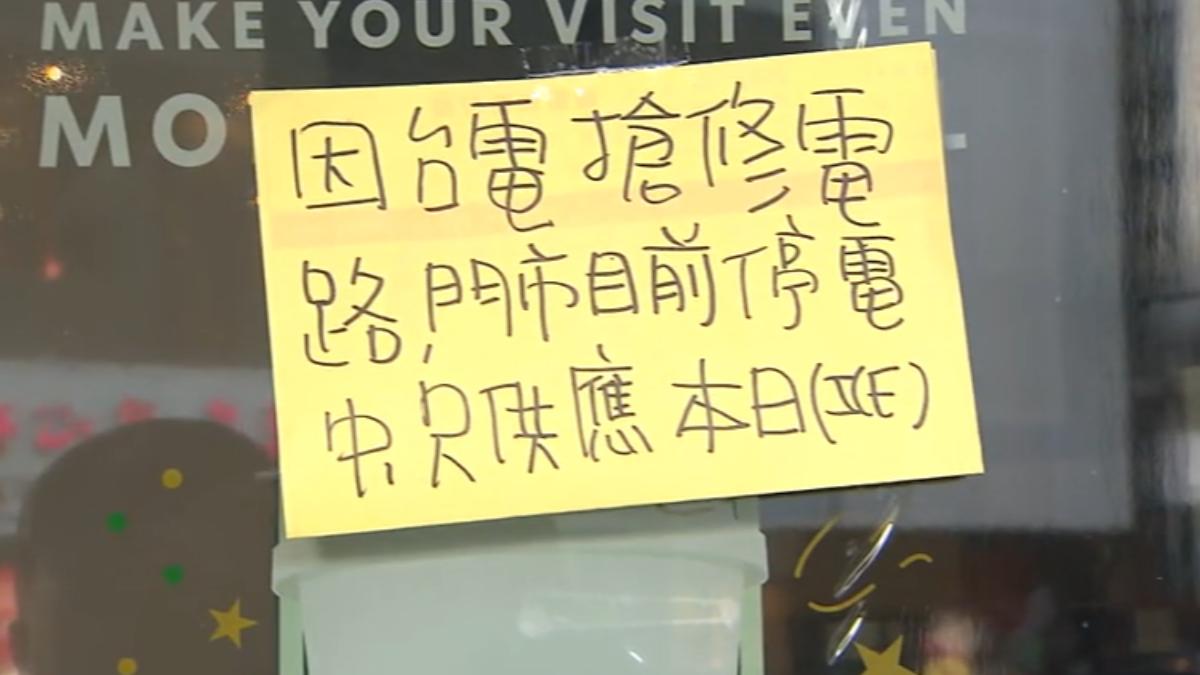 MAKE YOUR VISIT EVEN
MO
因台電搶修電
路,門市目前停電
中,只供應本日(ICE)